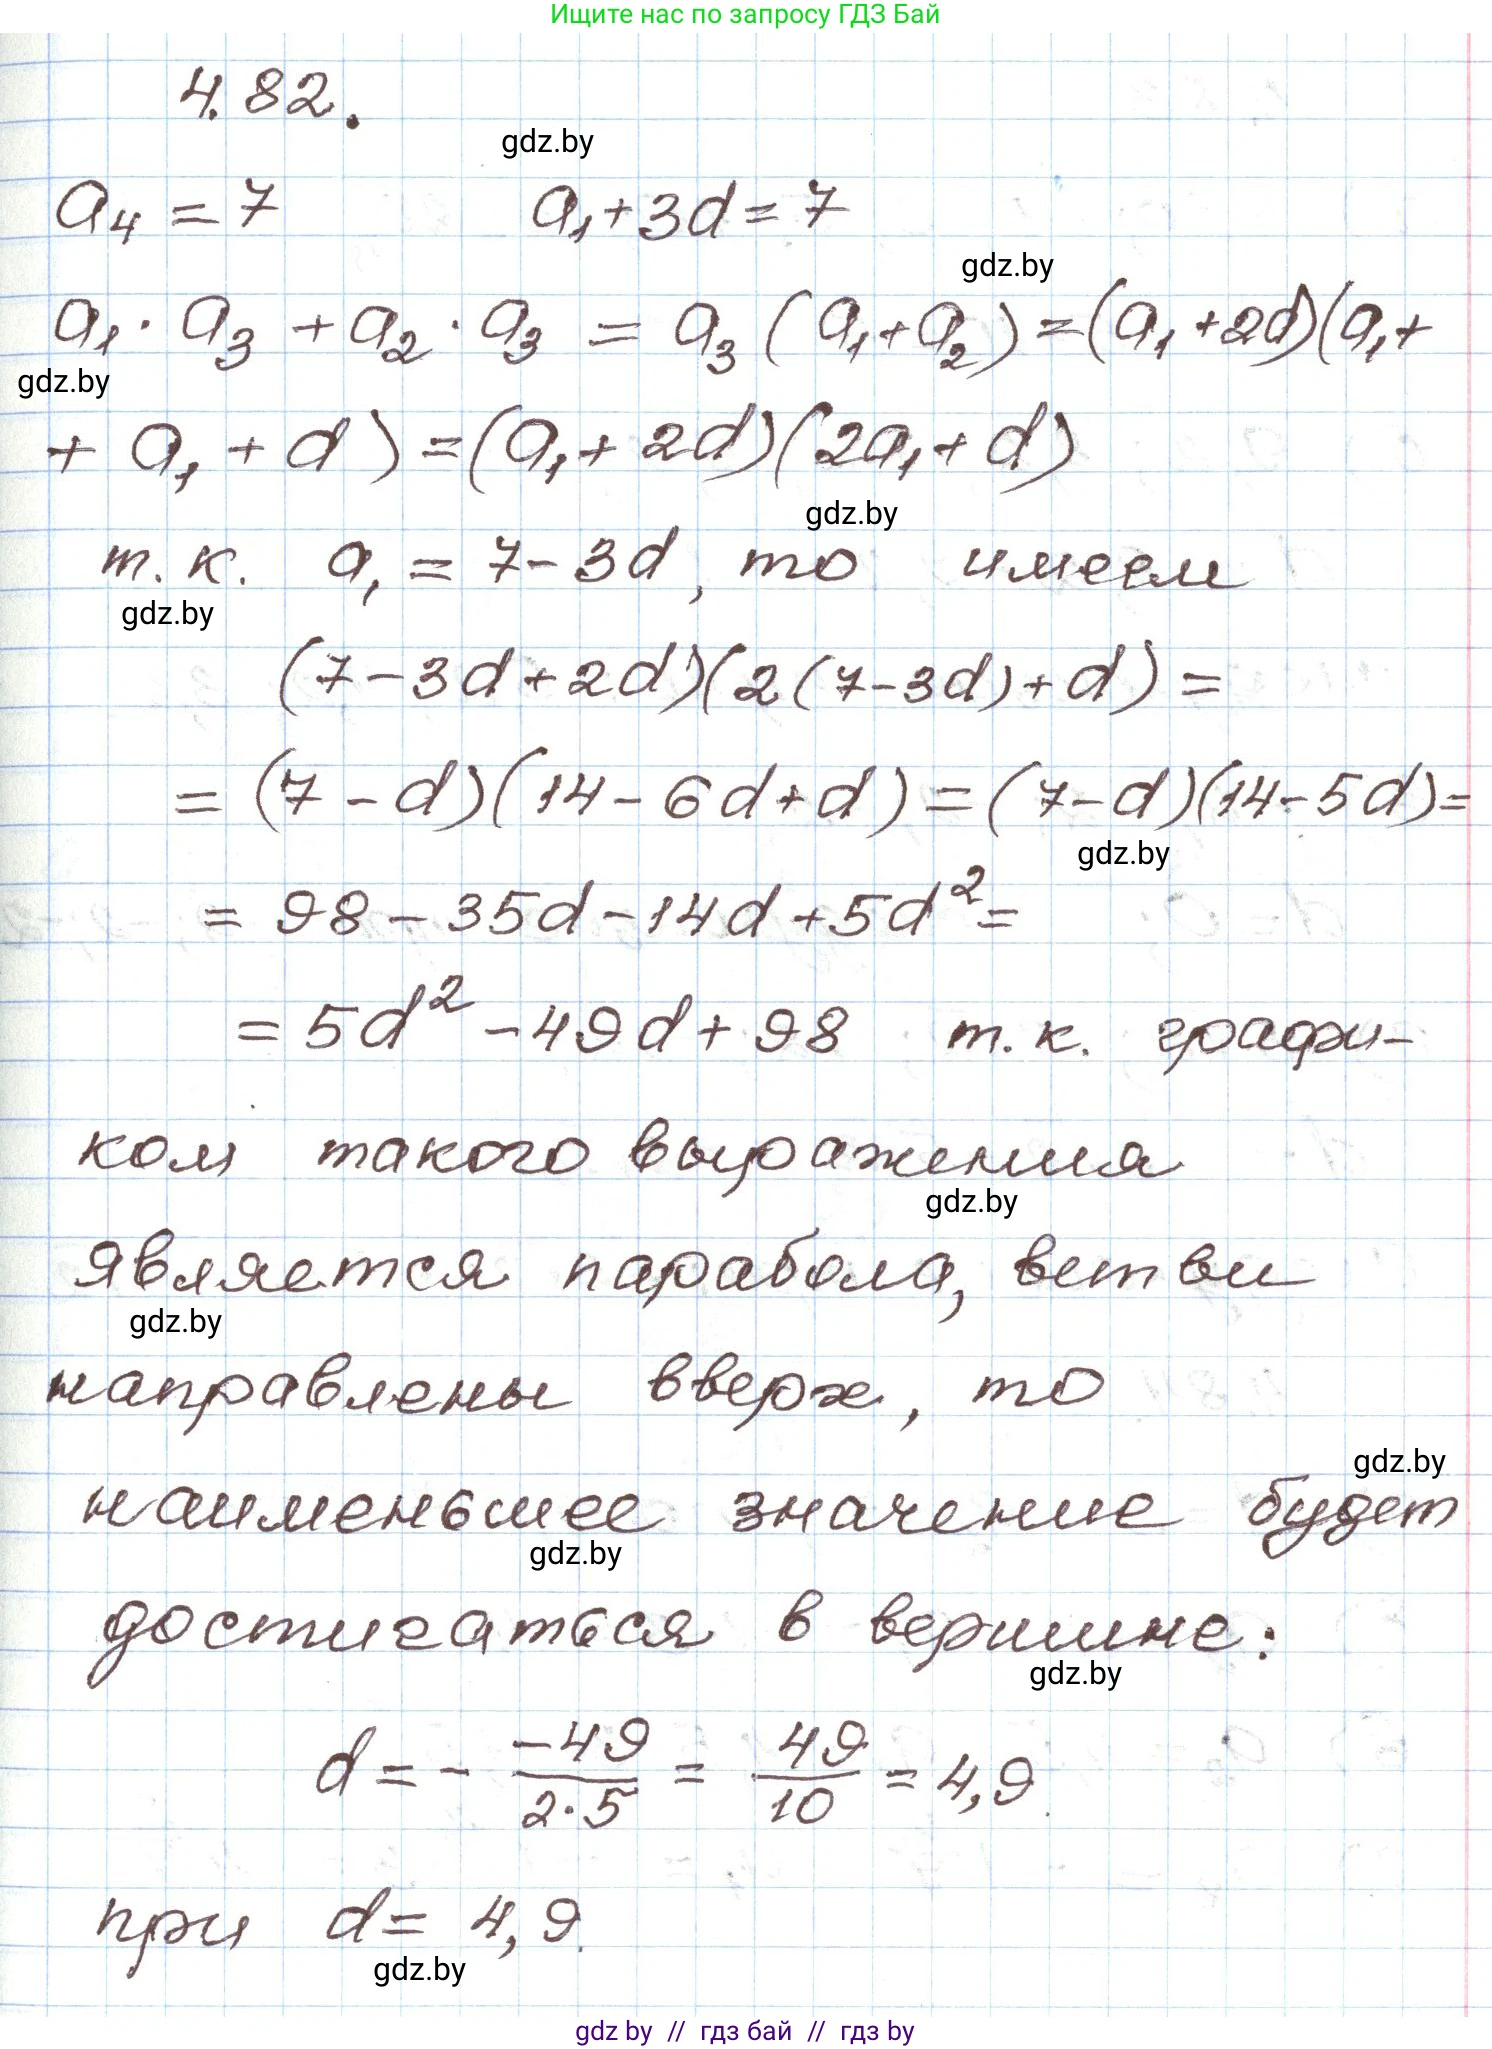 Ищите нас по запросу ГДЗ Бай
4.82.
gdz.by
a₄ = 7 a₁ + 3d = 7
gdz.by
a₁ · a₃ + a₂ · a₃ = a₃ (a₁ + a₂) = (a₁ + 2d)(a₁ +
gdz.by
+ a₁ + d) = (a₁ + 2d)(2a₁ + d)
gdz.by
т.к. a₁ = 7 - 3d, то имеем
gdz.by
(7 - 3d + 2d)(2(7 - 3d) + d) =
= (7 - d)(14 - 6d + d) = (7 - d)(14 - 5d) =
gdz.by
= 98 - 35d - 14d + 5d² =
= 5d² - 49d + 98 т.к. графи-
ком такого выражения
gdz.by
является парабола, ветви
gdz.by
направлены вверх, то
gdz.by
наименьшее значение будет
gdz.by
достигаться в вершине:
gdz.by
d = - -49/2·5 = 49/10 = 4,9.
при d = 4,9.
gdz.by
gdz by // гдз бай // гдз by